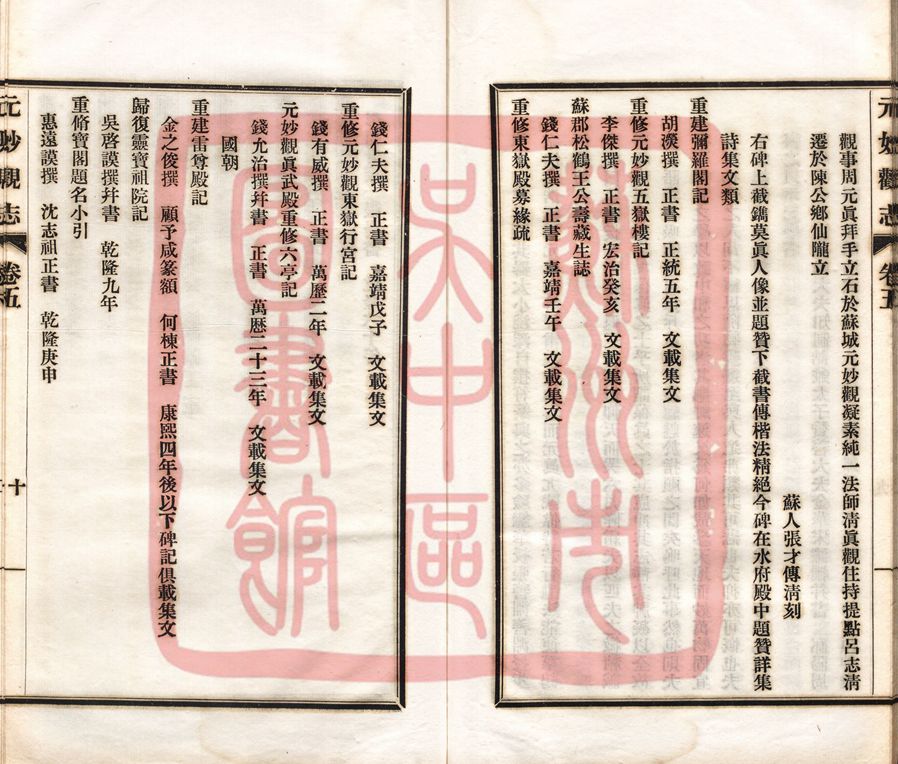 觀事周元眞拜手立石於蘇城元妙觀凝素純一法師淸眞觀住持提點呂志淸
遷於陳公鄉仙隴立
蘇人張才傳淸刻
右碑上截鐫莫眞人像並題贊下截書傳楷法精絕今碑在水府殿中題贊詳集
詩集文類
重建彌羅閣記
胡濙撰 正書 正統五年 文載集文
重修元妙觀五嶽樓記
李傑撰 正書 宏治癸亥 文載集文
蘇郡松鶴王公壽藏生誌
錢仁夫撰 正書 嘉靖壬午 文載集文
重修東嶽殿募緣疏
元妙觀志 卷五
錢仁夫撰 正書 嘉靖戊子 文載集文
重修元妙觀東嶽行宮記
錢有威撰 正書 萬歷二年 文載集文
元妙觀眞武殿重修六亭記
錢允治撰幷書 正書 萬歷二十三年 文載集文
國朝
重建雷尊殿記
金之俊撰 顧予咸篆額 何棟正書 康熙四年後以下碑記俱載集文
歸復靈寶祖院記
吳啓謨撰幷書 乾隆九年
重脩寶閣題名小引
惠遠謨撰 沈志祖正書 乾隆庚申
元妙觀志 卷五 十
蘇州市
吳中區
圖書館